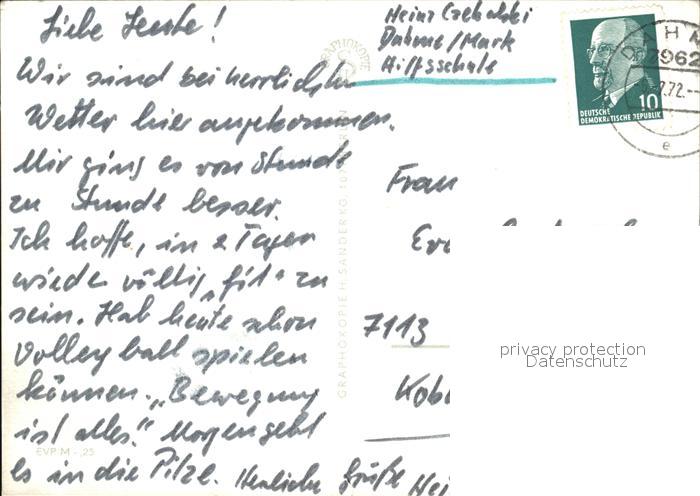 Liebe Leute!
Wir sind bei herrlichstem
Wetter hier angekommen.
Mir ging es von Stunde
zu Stunde besser.
Ich hoffe, in 2 Tagen
wieder völlig „fit“ zu
sein. Hab heute schon
Volleyball spielen
können. „Bewegung
ist alles.“ Morgen geht
es in die Pilze. Herzliche Grüße
Heinz
Dahme/Mark
Hilfsschule
DEUTSCHE
DEMOKRATISCHE REPUBLIK
10
7962
72.
e
GRAPHOKOPIE H. SANDERKG.
EVP M -,25
Frau
7113
privacy protection
Datenschutz